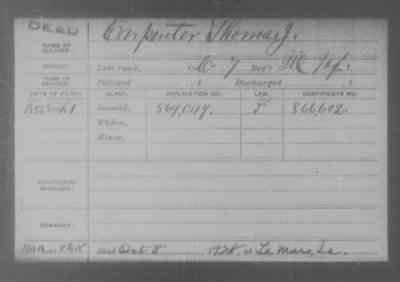 DEAD
Carpenter Thomas J.
NAME OF SOLDIER:
SERVICE: Late rank, Co. C, 7 Reg't Inf.
TERM OF SERVICE: Enlisted , 1 Discharged , 1
DATE OF FILING. CLASS. APPLICATION NO. LAW. CERTIFICATE NO.
Invalid, 564,049. 866602
Widow,
Minor,
ADDITIONAL SERVICES:
REMARKS:
Died Oct 8 1928, at Le Mars, Ia.